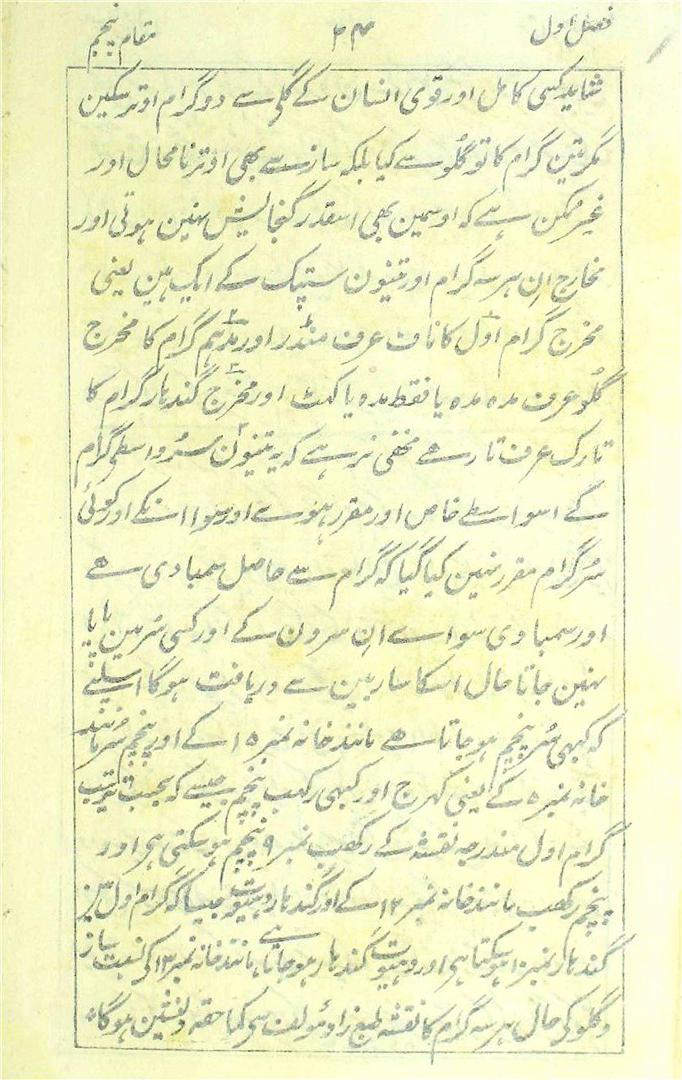 فصل اول ۲۴ مقام پنجم
شاید کسی کامل اور قوی انسان کے گلے سے دو گرام اوتر سکین
مگر تین گرام کا تو گلو سے کیا بلکہ ساز سے بھی اوترنا محال اور
غیر ممکن ہے کہ اوسمین بھی اسقدر گنجایش نہین ہوتی اور
مخارج ان ہر سہ گرام اور تینون سپتک کے ایک ہین یعنی
مخرج گرام اول کا ناف عرف مندر اور مدہم گرام کا مخرج
گلو عرف مدہ مدہ یا فقط مدہ یا کہٹ اور مخرج گندہار گرام کا
تارک عرف تار ہے مخفی نرہے کہ یہ تینون سر واسطے گرام
کے اسواسطے خاص اور مقرر ہوے اور سوا انکے اور کوئی
سر گرام مقرر نہین کیا گیا کہ گرام سے حاصل سمبادی ہے
اور سمبادی سواے ان سرون کے اور کسی سر مین پایا
نہین جاتا حال اسکا سارین سے دریافت ہوگا اسلیئے
کہ کبہی سر پنچم ہو جاتا ہے مانند خانہ نمبر ۱۵ کے اور پنچم سر مانند
خانہ نمبر ۵ کے یعنی کہرج اور کبہی رکہب پنچم جیسے کہ بجہت
گرام اول مندرجہ نقشہ کے رکہب نمبر ۹ پنچم ہو سکتی ہی اور
پنچم رکہب مانند خانہ نمبر ۱۲ کے اور گندہار دہیوت جیسا کہ گرام اول مین
گندہار نمبر ۱۰ ہو سکتا ہی اور دہیوت گندہار ہو جاتا ہے مانند خانہ نمبر ۱۳ کی نسبت ساز
و گلو کی حال ہر سہ گرام کا نقشہ طبع زاد مولف سی کما حقہ دلنشین ہوگا